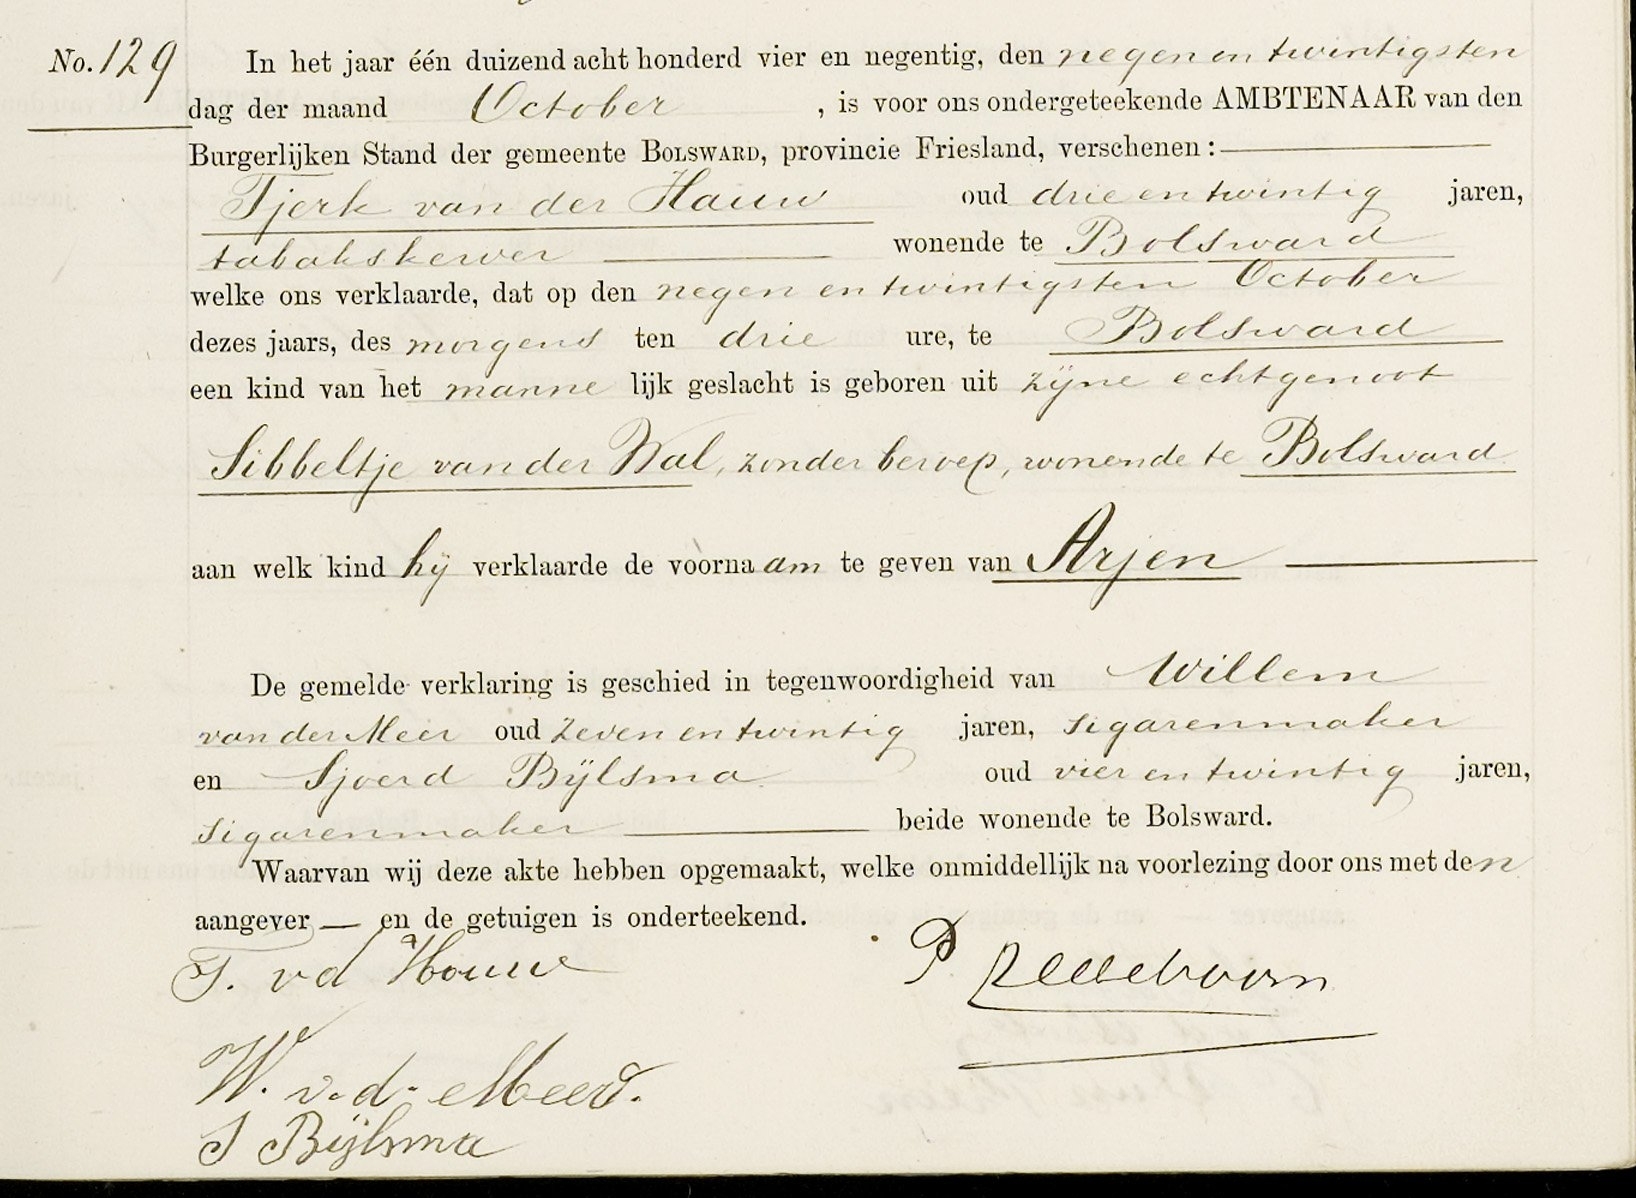 No. 129 In het jaar één duizend acht honderd vier en negentig, den negen en twintigsten
dag der maand October , is voor ons ondergeteekende AMBTENAAR van den
Burgerlijken Stand der gemeente BOLSWARD, provincie Friesland, verschenen :
Tjerk van der Hauw oud drie en twintig jaren,
tabakskerver wonende te Bolsward
welke ons verklaarde, dat op den negen en twintigsten October
dezes jaars, des morgens ten drie ure, te Bolsward
een kind van het manne lijk geslacht is geboren uit zijne echtgenoot
Sibbeltje van der Wal, zonder beroep, wonende te Bolsward
aan welk kind hij verklaarde de voornaam te geven van Arjen
De gemelde verklaring is geschied in tegenwoordigheid van Willem
van der Meer oud zeven en twintig jaren, sigarenmaker
en Sjoerd Bijlsma oud vier en twintig jaren,
sigarenmaker beide wonende te Bolsward.
Waarvan wij deze akte hebben opgemaakt, welke onmiddellijk na voorlezing door ons met den
aangever — en de getuigen is onderteekend.
T. vd Houw
P
W. v.d. Meer.
S Bijlsma